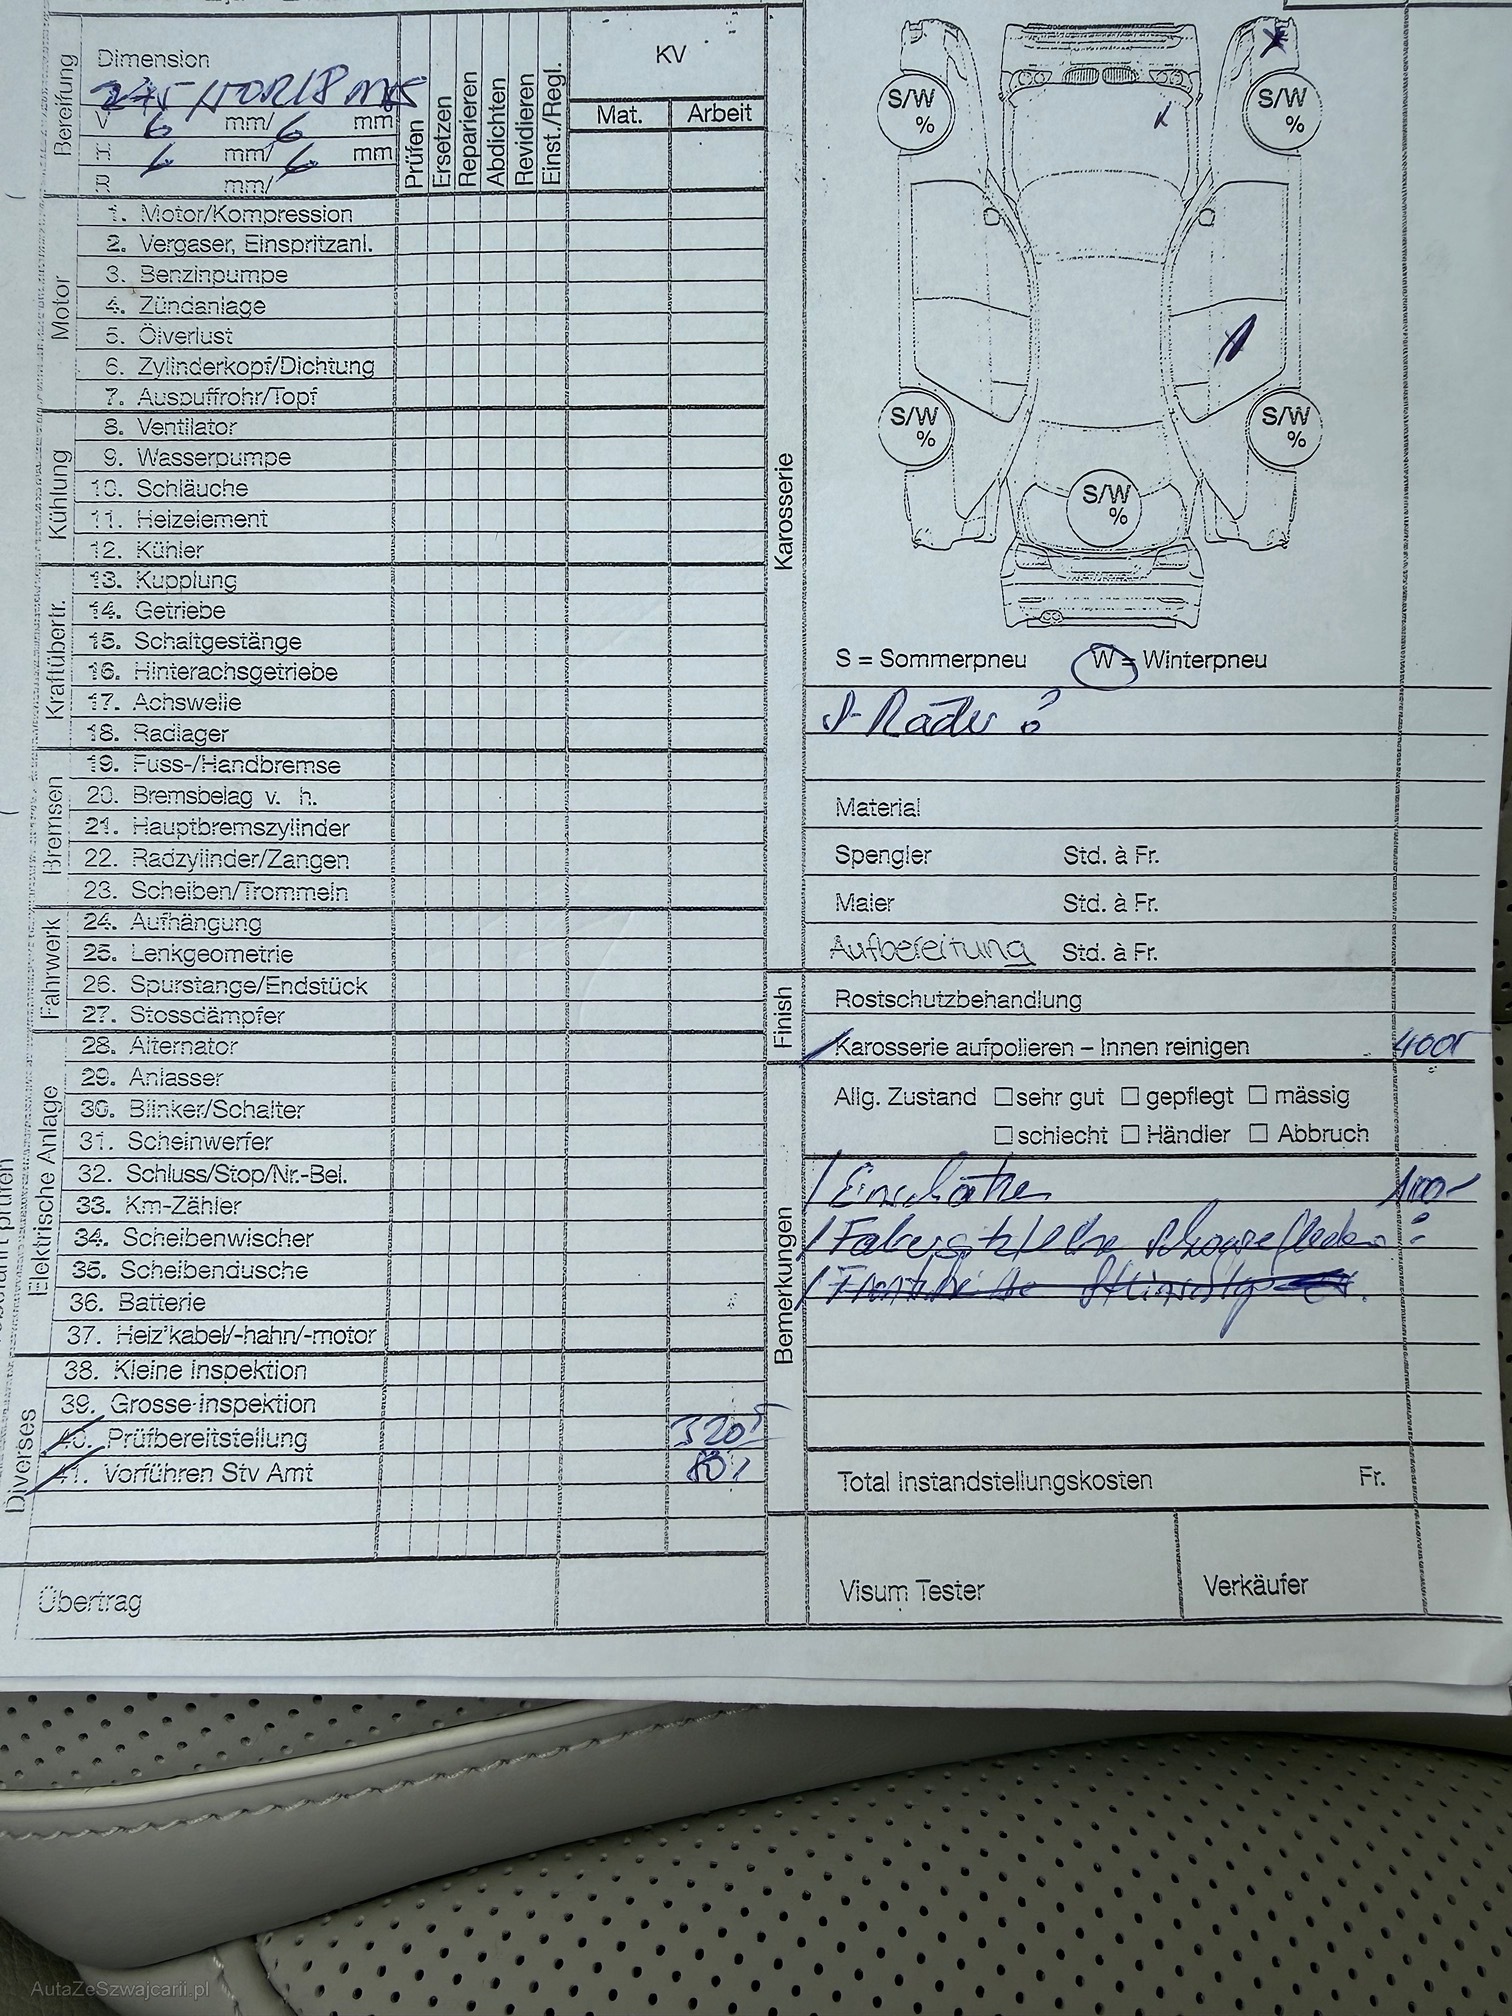 Bereifung
Dimension
V 6 mm/ 6 mm
H 6 mm/ 6 mm
R mm/
Prüfen
Ersetzen
Reparieren
Abdichten
Revidieren
Einst./Regl.
KV
Mat. Arbeit
Motor
1. Motor/Kompression
2. Vergaser, Einspritzanl.
3. Benzinpumpe
4. Zündanlage
5. Ölverlust
6. Zylinderkopf/Dichtung
7. Auspuffrohr/Topf
Kühlung
8. Ventilator
9. Wasserpumpe
10. Schläuche
11. Heizelement
12. Kühler
Kraftübertr.
13. Kupplung
14. Getriebe
15. Schaltgestänge
16. Hinterachsgetriebe
17. Achswelle
18. Radlager
Bremsen
19. Fuss-/Handbremse
20. Bremsbelag v. h.
21. Hauptbremszylinder
22. Radzylinder/Zangen
23. Scheiben/Trommeln
Fahrwerk
24. Aufhängung
25. Lenkgeometrie
26. Spurstange/Endstück
27. Stossdämpfer
Elektrische Anlage
28. Alternator
29. Anlasser
30. Blinker/Schalter
31. Scheinwerfer
32. Schluss/Stop/Nr.-Bel.
33. Km-Zähler
34. Scheibenwischer
35. Scheibendusche
36. Batterie
37. Heiz'kabel/-hahn/-motor
Diverses
38. Kleine Inspektion
39. Grosse Inspektion
40. Prüfbereitstellung 320.-
41. Vorführen Stv Amt 80.-
Übertrag
Karosserie
S/W %
S/W %
S/W %
S/W %
S/W %
S = Sommerpneu W = Winterpneu
S-Räder ?
Material
Spengler Std. à Fr.
Maler Std. à Fr.
Aufbereitung Std. à Fr.
Finish
Rostschutzbehandlung
Karosserie aufpolieren – Innen reinigen 400.-
Bemerkungen
Allg. Zustand ☐ sehr gut ☐ gepflegt ☐ mässig
☐ schlecht ☐ Händler ☐ Abbruch
Total Instandstellungskosten Fr.
Visum Tester
Verkäufer
AutaZeSzwajcarii.pl